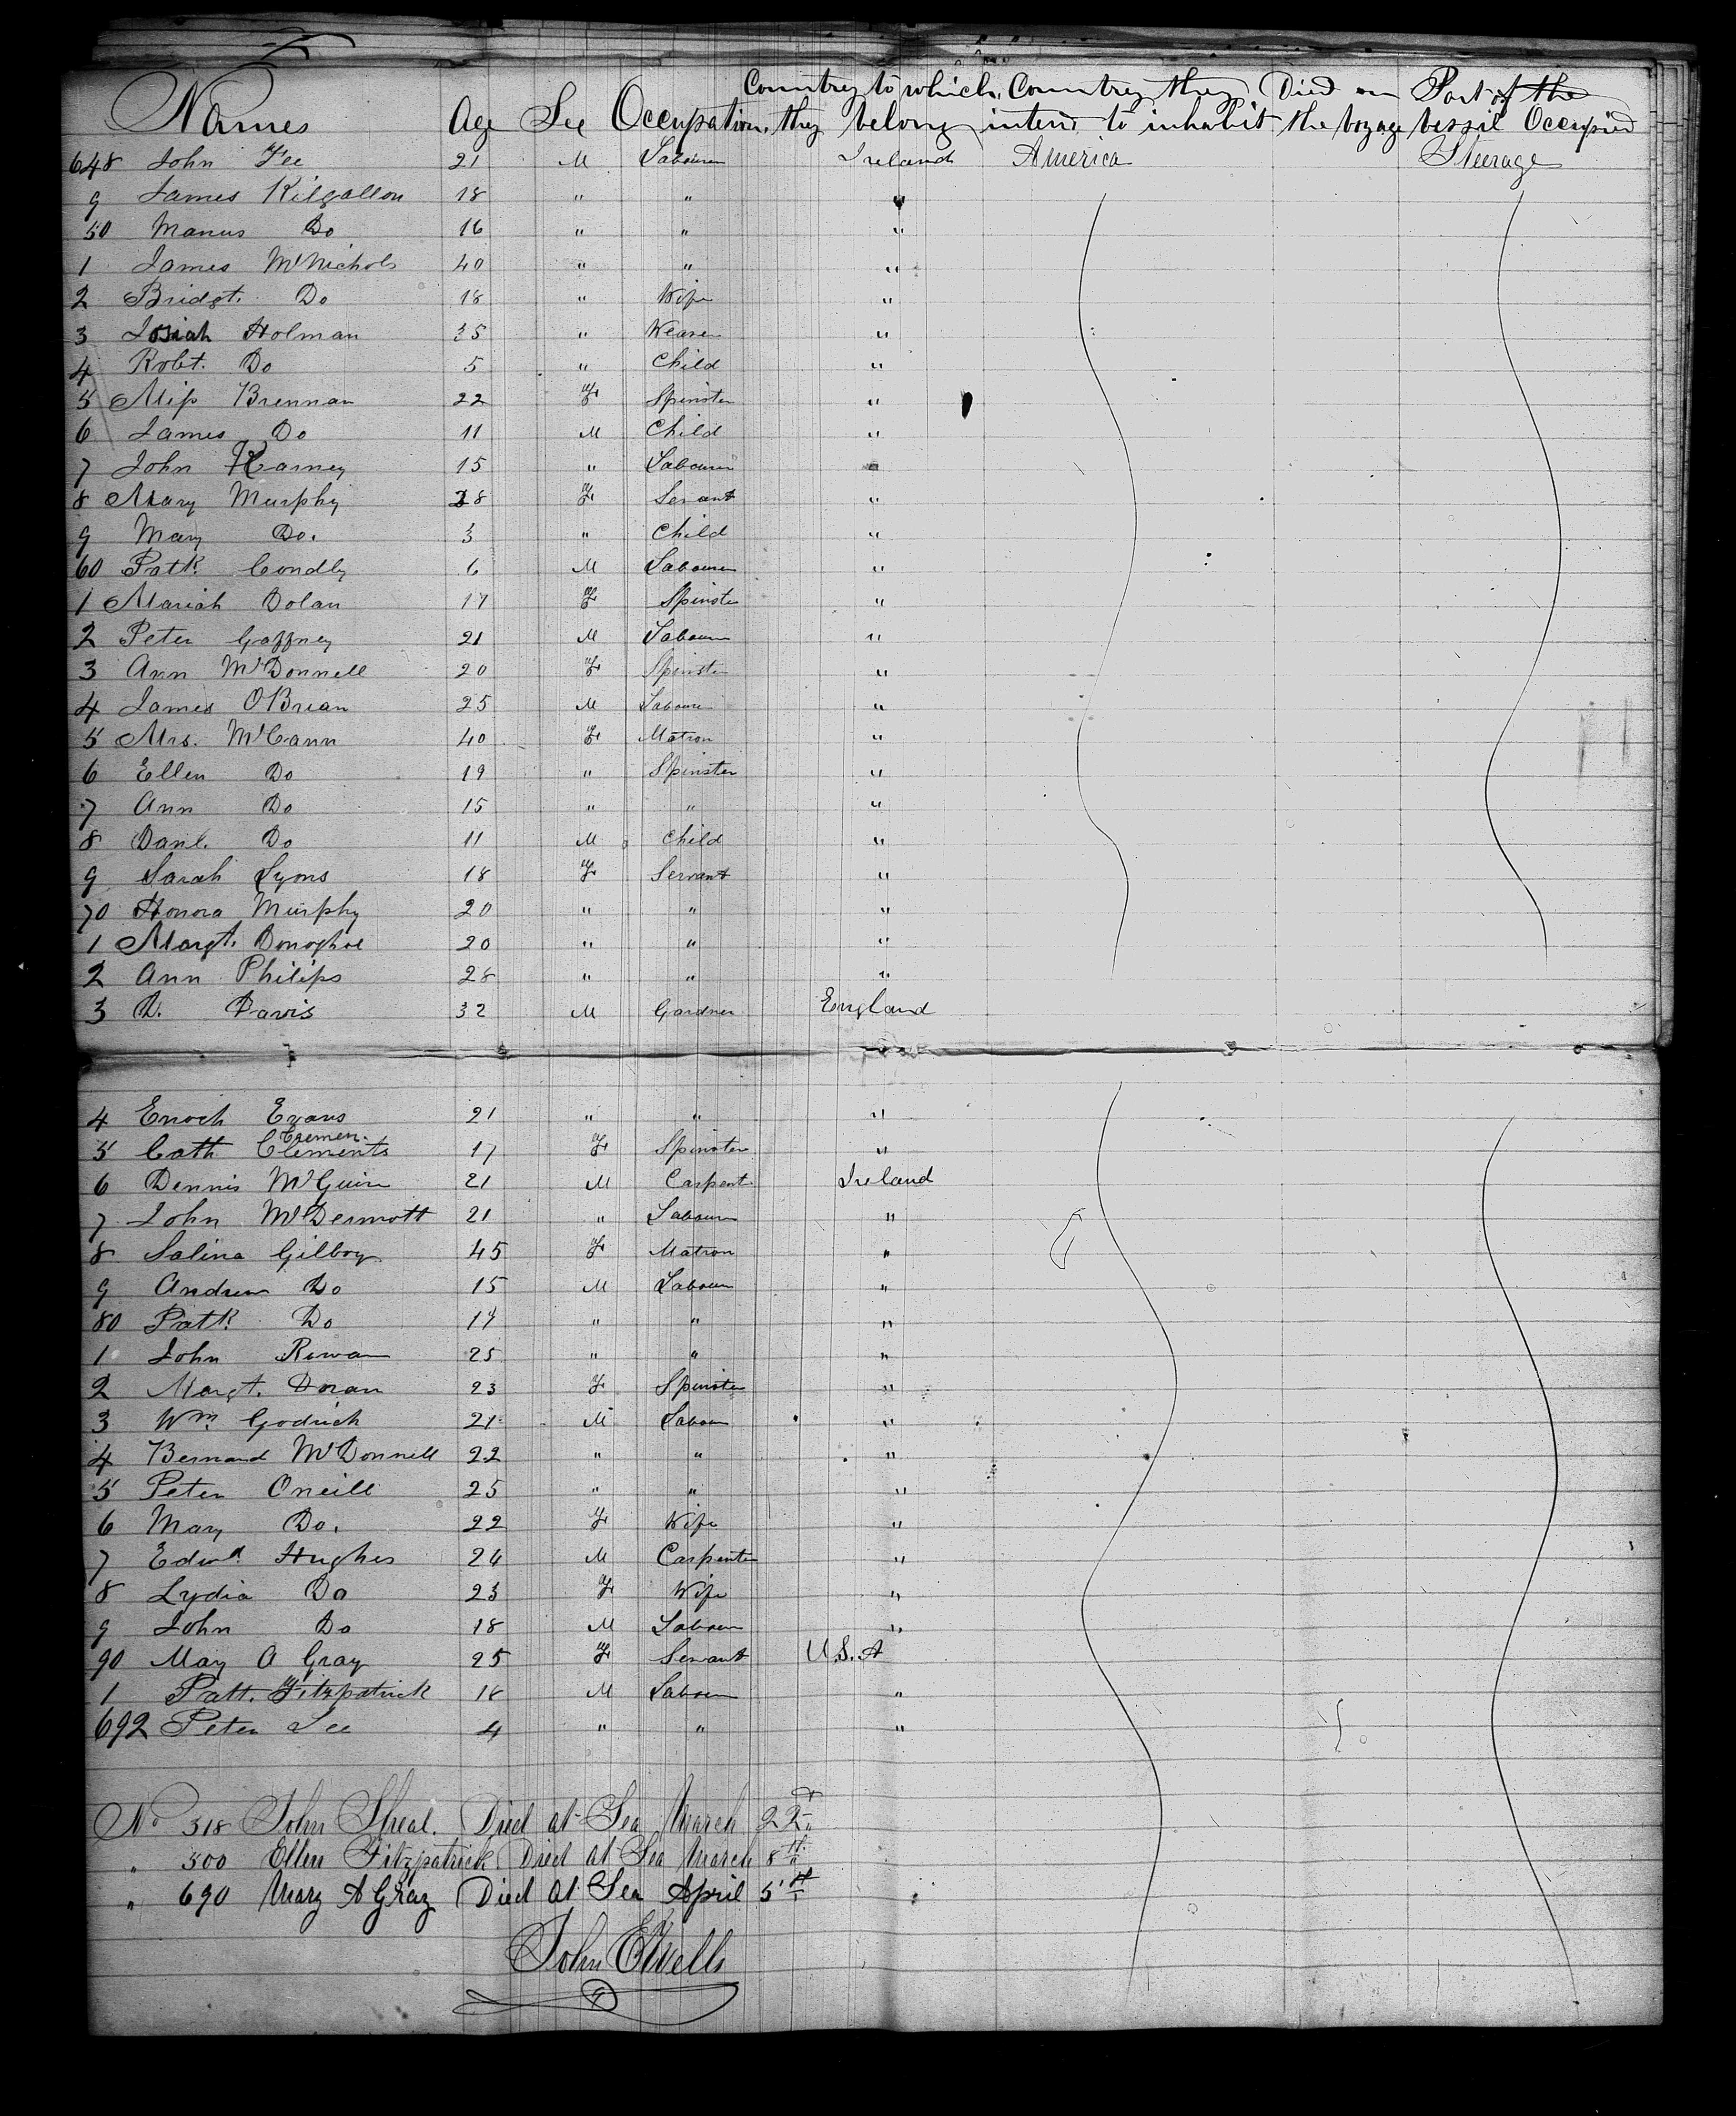 Names Age Sex Occupation Country to which they belong Country they intend to inhabit Died on the voyage Part of the vessel Occupied
648 John Fee 21 M Labourer Ireland America Steerage
9 James Kilgallon 18 " " "
50 Manus Do 16 " " "
1 James McNichols 40 " " "
2 Bridgt. Do 18 " Wife "
3 Josiah Holman 35 " Weaver "
4 Robt. Do 5 " Child "
5 Miss Brennan 22 F Spinster "
6 James Do 11 M Child "
7 John Karney 15 " Labourer "
8 Mary Murphy 28 F Servant "
9 Mary Do. 3 " Child "
60 Patk. Condly 6 M Labourer "
1 Mariah Dolan 17 F Spinster "
2 Peter Gaffney 21 M Labourer "
3 Ann McDonnell 20 F Spinster "
4 James OBrian 25 M Labourer "
5 Mrs. McCann 40 F Matron "
6 Ellen Do 19 " Spinster "
7 Ann Do 15 " " "
8 Danl. Do 11 M Child "
9 Sarah Lyons 18 F Servant "
70 Honora Murphy 20 " " "
1 Margt. Donoghoe 20 " " "
2 Ann Philips 28 " " "
3 D. Davis 32 M Gardner England
4 Enoch Evans 21 " " "
5 Cath Clements 17 F Spinster "
6 Dennis McGuire 21 M Carpent. Ireland
7 John McDermott 21 " Labourer "
8 Salina Gilboy 45 F Matron "
9 Andrew Do 15 M Labour "
80 Patk. Do 17 " " "
1 John Rowan 25 " " "
2 Margt. Doran 23 F Spinster "
3 Wm. Godrich 21 M Labour "
4 Bernard McDonnell 22 " " "
5 Peter Oneill 25 " " "
6 Mary Do. 22 F Wife "
7 Edwd. Hughes 24 M Carpenter "
8 Lydia Do 23 F Wife "
9 John Do 18 M Labour "
90 Mary A Gray 25 F Servant U.S.A
1 Patt. Fitzpatrick 18 M Labour "
692 Peter Lee 4 " " "
No 318 John Sheal. Died at Sea March 22d
" 500 Ellen Fitzpatrick Died at Sea March 8th
" 690 Mary A Gray Died at Sea April 5th
John Elwells